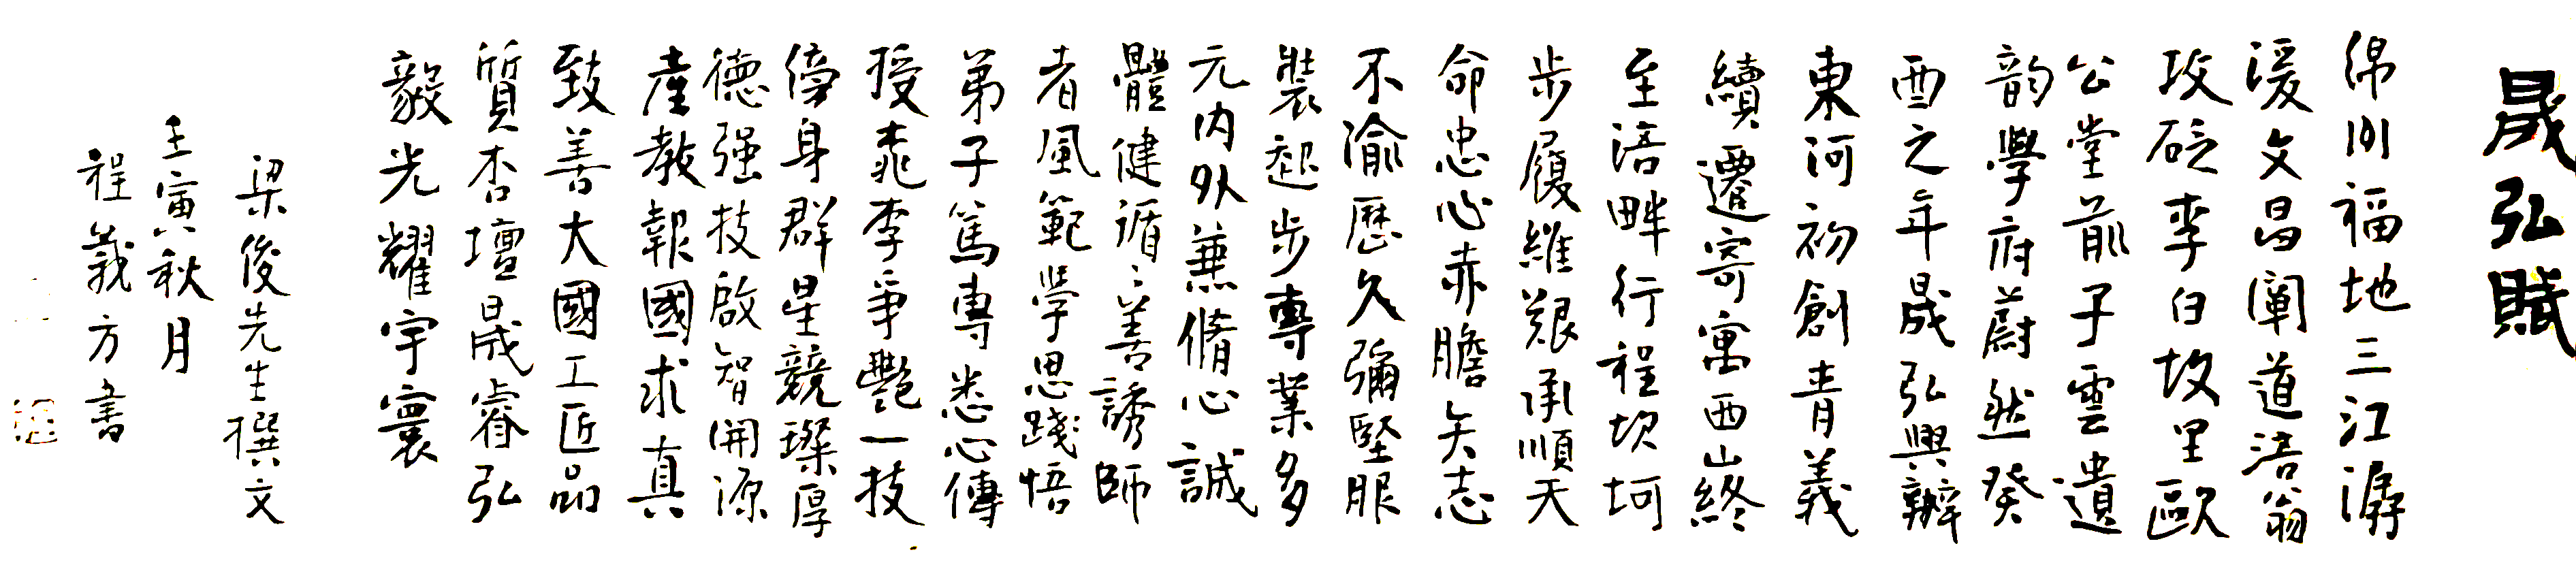 晟弘賦
綿州福地三江潺
湲文昌闡道涪翁
攻砭李白故里歐
公堂前子雲遺
韵學府蔚然癸
酉之年晟弘興辦
東河初創青義
續遷寄寓西山終
至涪畔行程坎坷
步履維艱承順天
命忠心赤膽矢志
不渝歷久彌堅服
裝起步專業多
元内外兼脩心誠
體健循〻善誘師
者風範學思踐悟
弟子篤專悉心傳
授桃李爭艷一技
傍身群星競璨厚
德强技啟智開源
產教報國求真
致善大國工匠品
質杏壇晟睿弘
毅光耀宇寰
梁俊先生撰文
壬寅秋月
程義方書